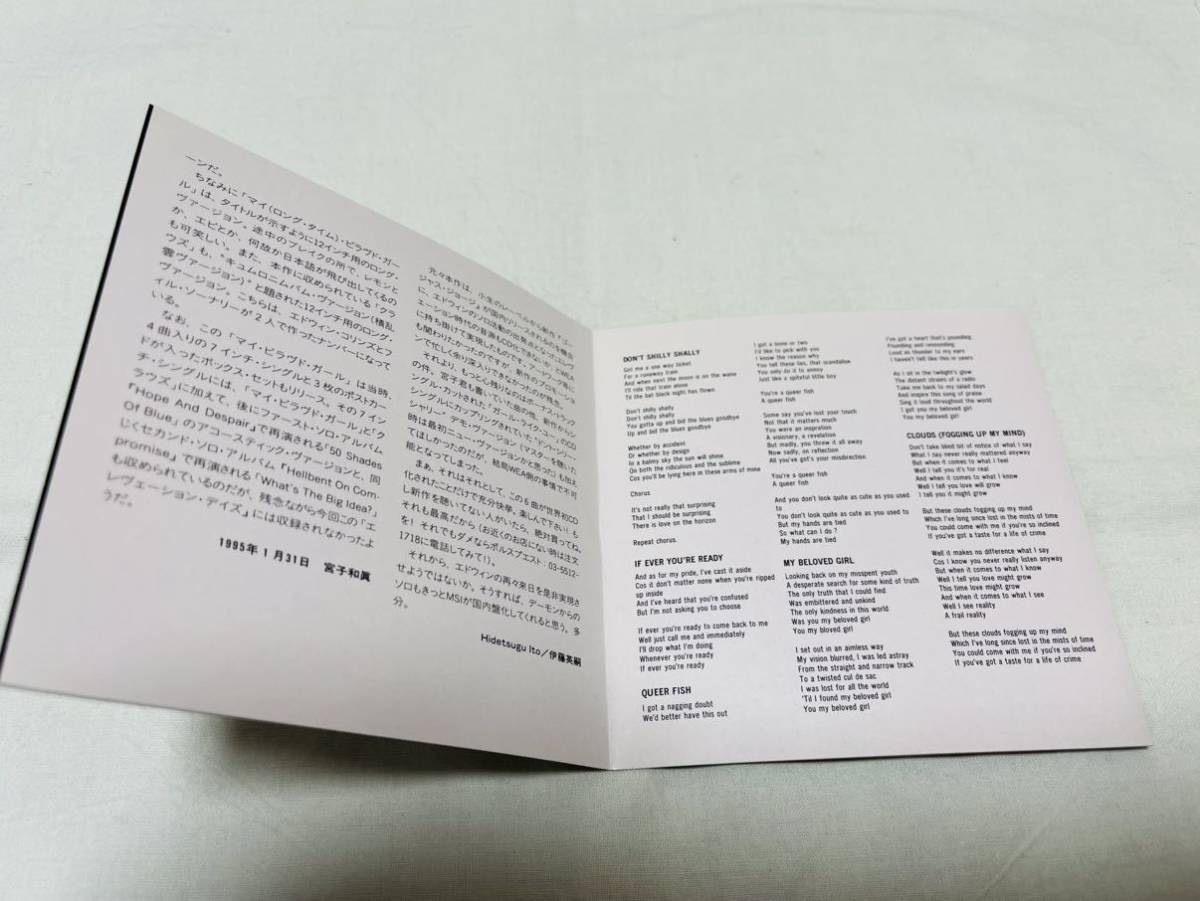 ーンだ。
ちなみに「マイ(ロング・タイム)・ビラヴド・ガー
ル」は、タイトルが示すように12インチ用のロング・
ヴァージョン。途中のブレイクの所で、レモンと
か、エビとか、何故か日本語が飛び出してくるの
も可笑しい。また、本作に収められている「クラ
ウズ」も、“キュムロニムバム・ヴァージョン(積乱
雲ヴァージョン)”と題された12インチ用のロング・
ヴァージョン。こちらは、エドウィン・コリンズとフ
ィル・ソーナリーが2人で作ったナンバーになって
いる。
なお、この「マイ・ビラヴド・ガール」は当時、
4曲入りの7インチ・シングルと3枚のポストカー
ドが入ったボックス・セットもリリース。その7イン
チ・シングルには、「マイ・ビラヴド・ガール」と「ク
ラウズ」に加えて、後にファースト・ソロ・アルバム
「Hope And Despair」で再演される「50 Shades
Of Blue」のアコースティック・ヴァージョンと、同
じくセカンド・ソロ・アルバム「Hellbent On Com-
promise」で再演される「What's The Big Idea?」
も収められているのだが、残念ながら今回この「エ
レヴェーション・デイズ」には収録されなかったよ
うだ。
1995年1月31日 宮子和眞
元々本作は、小生のレーベルから新作「ゴー
ジャス・ジョージ」が国内リリースされるのを機会
に、エドウィンのソロ活動の出発点となったエレヴ
ェーション時代の音源もCD化できないか、とWEA
に持ち掛けて実現したものです。アートワーク等に
も関わりたかったのですが、新作のプロモーショ
ンで忙しく余り深入りできなかったのが残念。
それより、もっと心残りなのはボーナス・トラック
の件。宮子君も書いていた曲の他、新作からシ
ングル・カットされた“ガール・ライク・ユー”のCD
シングルにカップリングされた“ドント・シリー・
シャリー”デモ・ヴァージョン(マスターを聴いた
時は最初ニュー・ヴァージョンかと思った)も加え
てほしかったのだが、結局WEA側の事情で不可
能となってしまった。
まあ、それはそれとして、この6曲が世界初CD
化されたことだけで充分快挙。楽しんで下さい。も
し新作を聴いてない人がいたら、絶対買ってね。
それも最高だから(お近くのお店にない時は注文
を!それでもダメならポルスプエスト:03-5512-
1718に電話してみて!)。
それから、エドウィンの再々来日を是非実現さ
せようではないか。そうすれば、デーモンからの
ソロもきっとMSIが国内盤化してくれると思う。多
分。
Hidetsugu Ito／伊藤英嗣
DON'T SHILLY SHALLY
Got me a one way ticket
For a runaway train
And when next the moon is on the wane
I'll ride that train alone
Til the bat black night has flown
Don't shilly shally
Don't shilly shally
You gotta up and bid the blues goodbye
Up and bid the blues goodbye
Whether by accident
Or whether by design
In a balmy sky the sun will shine
On both the ridiculous and the sublime
Cos you'll be lying here in these arms of mine
Chorus
It's not really that surprising
That I should be surprising
There is love on the horizon
Repeat chorus.
IF EVER YOU'RE READY
And as for my pride, I've cast it aside
Cos it don't matter none when you're ripped
up inside
And I've heard that you're confused
But I'm not asking you to choose
If ever you're ready to come back to me
Well just call me and immediately
I'll drop what I'm doing
Whenever you're ready
If ever you're ready
QUEER FISH
I got a nagging doubt
We'd better have this out
I got a bone or two
I'd like to pick with you
I know the reason why
You tell these lies, that scandalise
You only do it to annoy
Just like a spiteful little boy
You're a queer fish
A queer fish
Some say you've lost your touch
Not that it matters much
You were an inspiration
A visionary, a revelation
But madly, you threw it all away
Now sadly, on reflection
All you've got's your misdirection
You're a queer fish
A queer fish
And you don't look quite as cute as you used
to
You don't look quite as cute as you used to
But my hands are tied
So what can I do ?
My hands are tied
MY BELOVED GIRL
Looking back on my misspent youth
A desperate search for some kind of truth
The only truth that I could find
Was embittered and unkind
The only kindness in this world
Was you my beloved girl
You my bloved girl
I set out in an aimless way
My vision blurred, I was led astray
From the straight and narrow track
To a twisted cul de sac
I was lost for all the world
'Til I found my beloved girl
You my beloved girl
I've got a heart that's pounding
Pounding and resounding
Loud as thunder to my ears
I haven't felt like this in years
As I sit in the twilight's glow
The distant strears of a radio
Take me back to my salad days
And inspire this song of praise
Sing it loud throughout the world
I got you my beloved girl
You my beloved girl
CLOUDS (FOGGING UP MY MIND)
Don't take blind bit of notice of what I say
What I say never really mattered anyway
But when it comes to what I feel
Well I tell you it's for real
And when it comes to what I know
Well I tell you love will grow
I tell you it might grow
But these clouds fogging up my mind
Which I've long since lost in the mists of time
You could come with me if you're so inclined
If you've got a taste for a life of crime
Well it makes no difference what I say
Cos I know you never really listen anyway
But when it comes to what I know
Well I tell you love might grow
This time love might grow
And when it comes to what I see
Well I see reality
A frail reality
But these clouds fogging up my mind
Which I've long since lost in the mists of time
You could come with me if you're so inclined
If you've got a taste for a life of crime